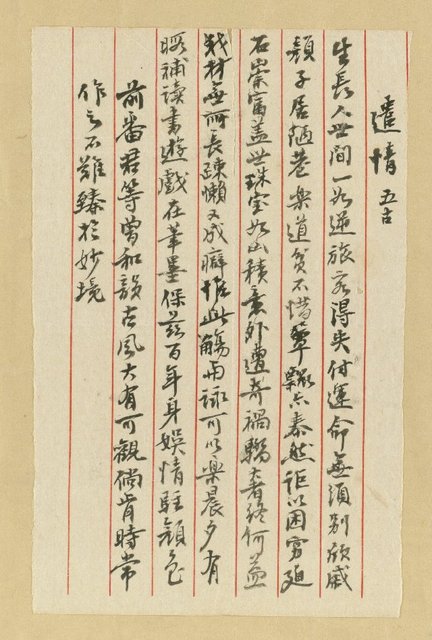 遣情 五古
生長人世間一如逆旅客得失付運命無須別欣戚
顏子居陋巷樂道貧不惜簞瓢亦泰然詎以困窮迫
石崇富蓋世珠寶如山積意外遭奇禍驕奢終何益
我材無所長疎懶又成癖惟此觴與詠可以樂晨夕有
暇補讀書遊戲在筆墨保茲百年身娛情駐顏色
前番君等曾和韻古風大有可觀倘肯時常
作之不難臻於妙境